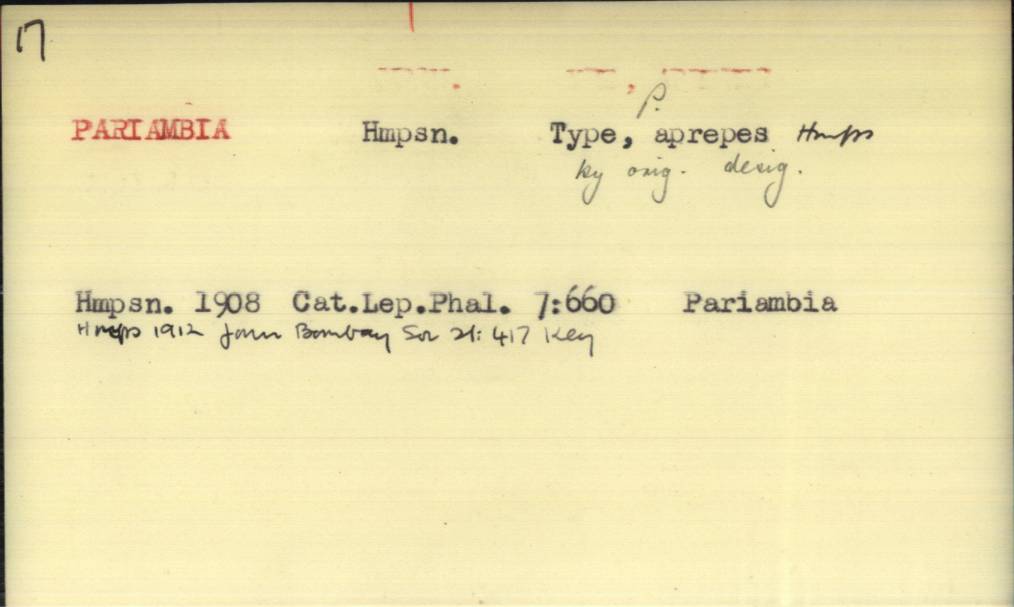 17
P.
PARIAMBIA Hmpsn. Type, aprepes Hmps
by orig. desig.
Hmpsn. 1908 Cat.Lep.Phal. 7:660 Pariambia
Hmps 1912 Journ Bombay Soc 21: 417 Key